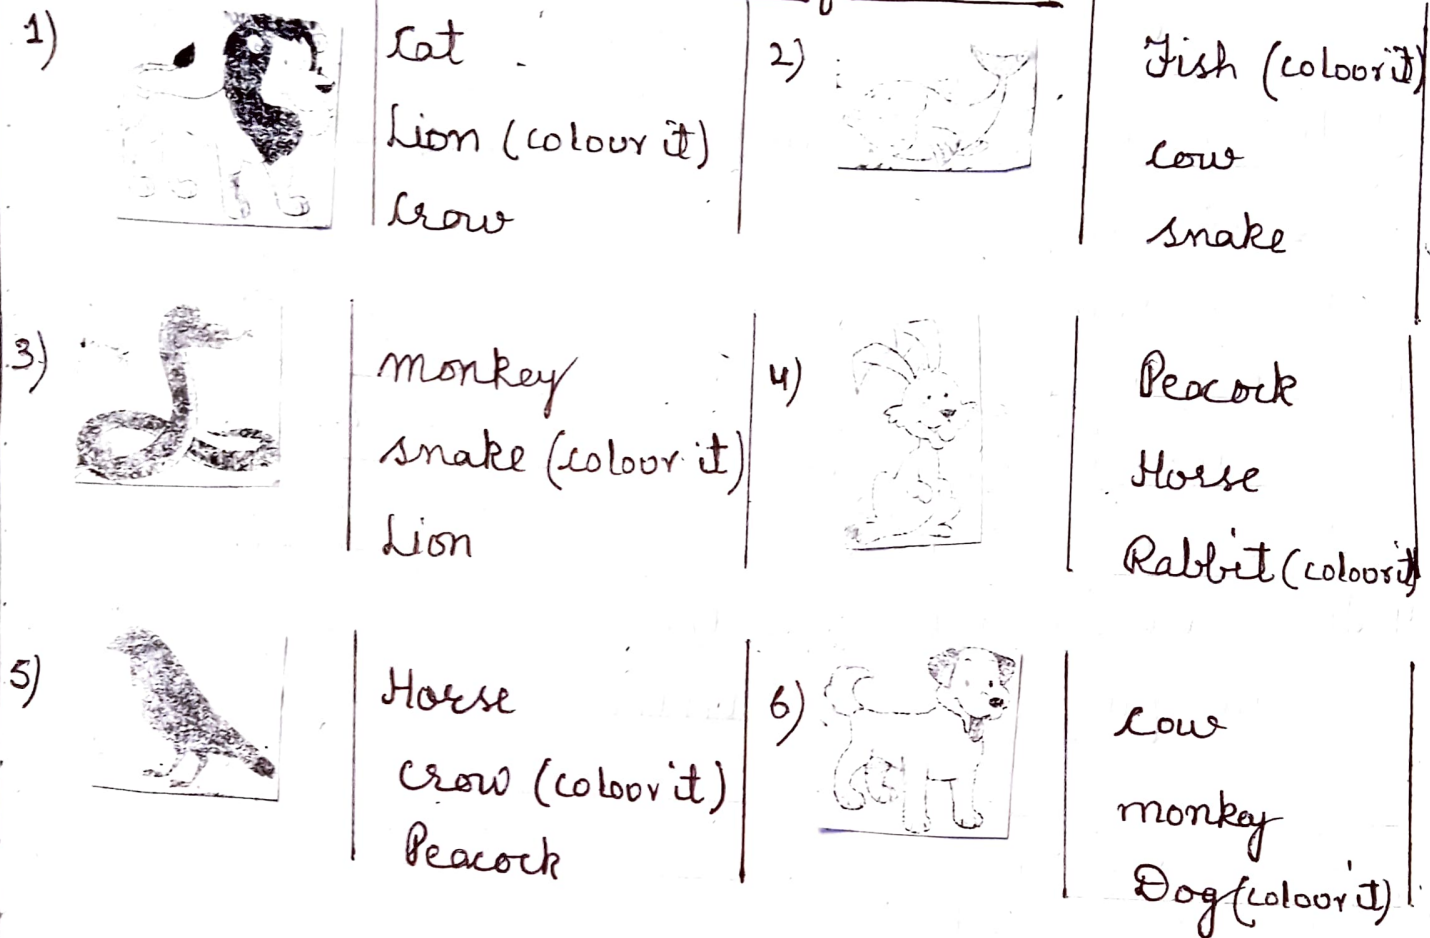 1)
Cat
Lion (colour it)
Crow
2)
Fish (coloor it)
cow
snake
3)
monkey
snake (coloor it)
Lion
4)
Peacock
Horse
Rabbit (coloor it)
5)
Horse
Crow (coloor it)
Peacock
6)
cow
monkey
Dog (coloor it)